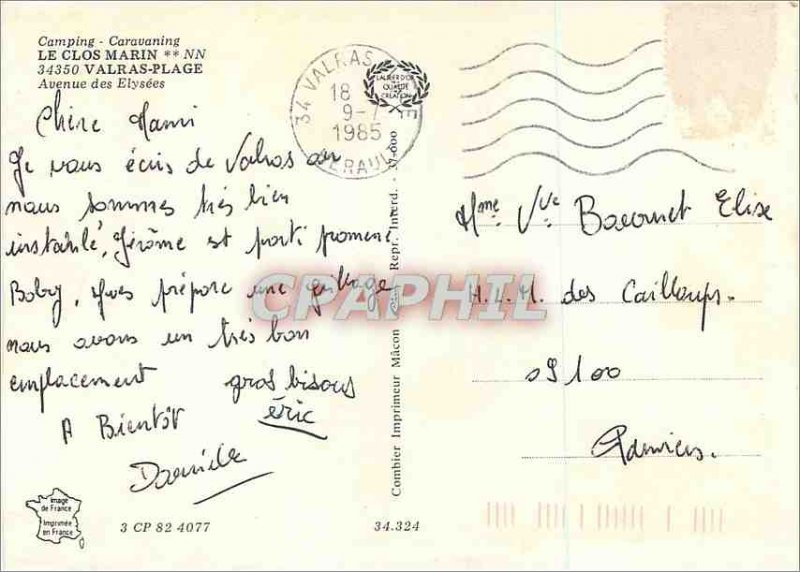 Camping - Caravaning
LE CLOS MARIN ** NN
34350 VALRAS-PLAGE
Avenue des Elysées
Chère Mami
Je vous écris de Valras ou
nous sommes très bien
instahlé, Jérôme est parti promené
Boby, Yves prépare une grillage
nous avons un très bon
emplacement gros bisous
A Bientôt éric
Danielle
34 VALRAS
18
9-7
1985
HERAULT
LAURIER D'OR
QUALITÉ
CRÉATION
Combier Imprimeur Mâcon
Repr. Interd. - 37.000
Mme Vve Bacournet Elise
H.L.M. des Cailloups.
09100
Pamiers.
CPAPHIL
Image
de France
Imprimée
en France
3 CP 82 4077
34.324